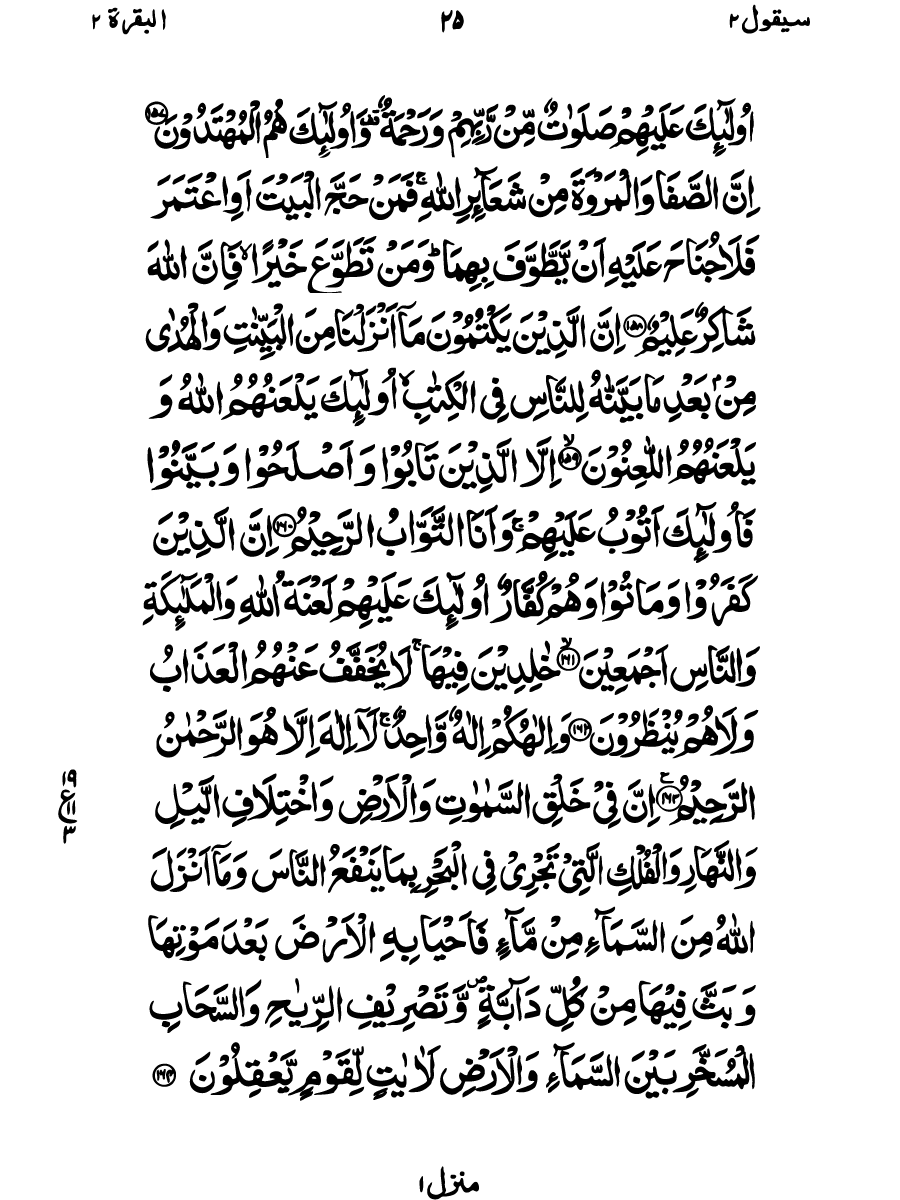 سيقول ٢ ٢٥ البقرة ٢
اُولٰٓئِكَ عَلَيْهِمْ صَلَوٰتٌ مِّنْ رَّبِّهِمْ وَرَحْمَةٌ ۫ وَاُولٰٓئِكَ هُمُ الْمُهْتَدُوْنَ ﴿۱۵۷﴾
اِنَّ الصَّفَا وَالْمَرْوَةَ مِنْ شَعَآئِرِ اللّٰهِ ۚ فَمَنْ حَجَّ الْبَيْتَ اَوِ اعْتَمَرَ
فَلَا جُنَاحَ عَلَيْهِ اَنْ يَّطَّوَّفَ بِهِمَا ؕ وَمَنْ تَطَوَّعَ خَيْرًا ۙ فَاِنَّ اللّٰهَ
شَاكِرٌ عَلِيْمٌ ﴿۱۵۸﴾ اِنَّ الَّذِيْنَ يَكْتُمُوْنَ مَآ اَنْزَلْنَا مِنَ الْبَيِّنٰتِ وَالْهُدٰى
مِنْۢ بَعْدِ مَا بَيَّنّٰهُ لِلنَّاسِ فِى الْكِتٰبِ ۙ اُولٰٓئِكَ يَلْعَنُهُمُ اللّٰهُ وَ
يَلْعَنُهُمُ اللّٰعِنُوْنَ ۙ﴿۱۵۹﴾ اِلَّا الَّذِيْنَ تَابُوْا وَ اَصْلَحُوْا وَ بَيَّنُوْا
فَاُولٰٓئِكَ اَتُوْبُ عَلَيْهِمْ ۚ وَ اَنَا التَّوَّابُ الرَّحِيْمُ ﴿۱۶۰﴾ اِنَّ الَّذِيْنَ
كَفَرُوْا وَ مَا تُوْا وَهُمْ كُفَّارٌ اُولٰٓئِكَ عَلَيْهِمْ لَعْنَةُ اللّٰهِ وَالْمَلٰٓئِكَةِ
وَالنَّاسِ اَجْمَعِيْنَ ۙ﴿۱۶۱﴾ خٰلِدِيْنَ فِيْهَا ۚ لَا يُخَفَّفُ عَنْهُمُ الْعَذَابُ
وَلَا هُمْ يُنْظَرُوْنَ ﴿۱۶۲﴾ وَاِلٰهُكُمْ اِلٰهٌ وَّاحِدٌ ۚ لَآ اِلٰهَ اِلَّا هُوَ الرَّحْمٰنُ
الرَّحِيْمُ ﴿۱۶۳﴾ اِنَّ فِيْ خَلْقِ السَّمٰوٰتِ وَالْاَرْضِ وَاخْتِلَافِ الَّيْلِ
۱۹ ع ۱۱ ۳
وَالنَّهَارِ وَالْفُلْكِ الَّتِيْ تَجْرِيْ فِى الْبَحْرِ بِمَا يَنْفَعُ النَّاسَ وَمَآ اَنْزَلَ
اللّٰهُ مِنَ السَّمَآءِ مِنْ مَّآءٍ فَاَحْيَا بِهِ الْاَرْضَ بَعْدَ مَوْتِهَا
وَ بَثَّ فِيْهَا مِنْ كُلِّ دَآبَّةٍ ۪ وَّ تَصْرِيْفِ الرِّيٰحِ وَالسَّحَابِ
الْمُسَخَّرِ بَيْنَ السَّمَآءِ وَالْاَرْضِ لَاٰيٰتٍ لِّقَوْمٍ يَّعْقِلُوْنَ ﴿۱۶۴﴾
منزل ۱